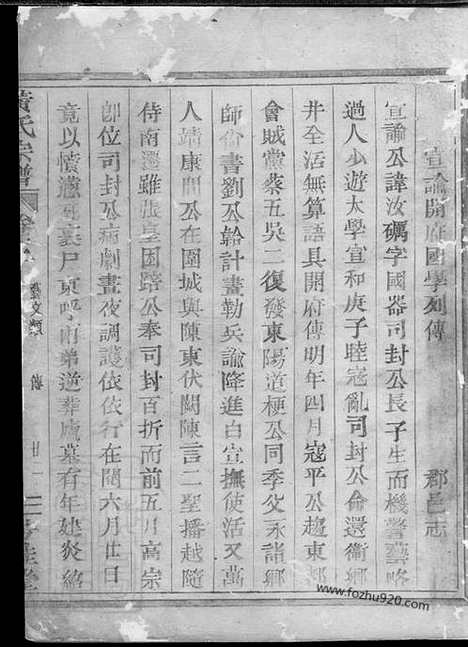 宣諭開府國學列傳
郡邑志
宣諭公諱汝礪字國器司封公長子生而機警藝略
過人少遊太學宣和庚子睦寇亂司封公命還衛鄉
井全活無算語具開府傳明年四月寇平公趨東
會賊黨蔡五吳二復發東陽道梗公同季父永諸鄉
師偷書劉公韐計畫勒兵諭降進白宣撫使活又萬
人靖康間公在圍城與陳東伏闕陳言二聖播越隨
侍南還雖張皇困踣公奉司封百折而前五月高宗
卽位司封公病劇晝夜調護依依行在閏六月廿日
竟以憤懣 裏尸 呼 弟逆葬廬墓有年建炎紹
黃氏宗譜
藝文類
傳
廿一
www.fozhu920.com